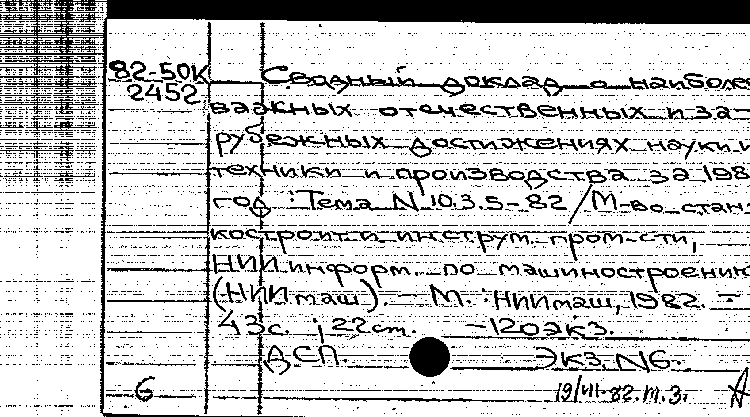 82-50К Сводный доклад о наиболе
2452 важных отечественных и за-
рубежных достижениях науки и
техники и производства за 198
год : Тема N 10.3.5-82 / М-во стан-
костроит. и инструм. пром-сти,
НИИ информ. по машиностроению
(НИИмаш). - М. : НИИмаш, 1982. -
43с. ; 22см. - 120экз.
ДСП. Экз. N6.
6 19/VII-82. т.3.